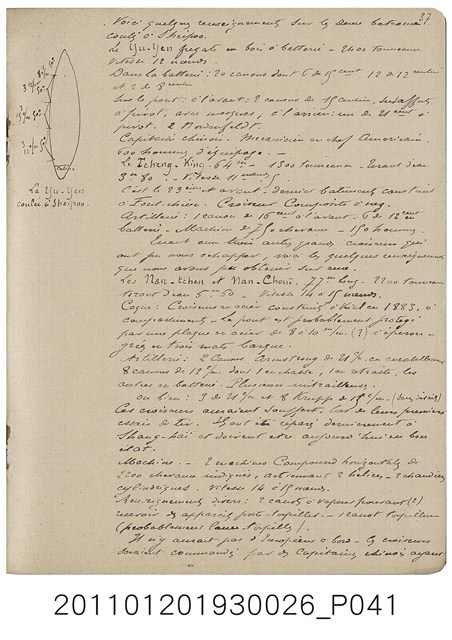 37
Voici quelques renseignements sur les deux bâtiments
coulés à Sheïpoo.
Le Yu-Yen frégate en bois à batterie - 2400 tonneaux
Vitesse 12 nœuds.
Dans la batterie : 20 canons dont 6 de 15 cent 12 de 12 cent
et 2 de 8 cent
Sur le pont : à l'avant : 2 canons de 15 cent, sur affûts
à pivot, avec masques ; à l'arrière : un de 21 cent à
pivot. 2 Nordenfeldt.
Capitaine chinois. Mécanicien en chef Américain.
600 hommes d'équipage.
Le Tcheng-King. 64 m - 1300 tonneaux - Tirant d'eau
3m 80 - Vitesse 11 nœuds 5
C'est le 23ème et avant-dernier bâtiment construit
à Foutchéou. Croiseur Composite à hég.
Artillerie : 1 canon de 16 cent à l'avant - 6 de 12 cent en
batterie - Machine de 750 chevaux - 150 hommes.
Quant aux trois autres grands croiseurs qui
ont pu nous échapper, voici les quelques renseignements
que nous avons pu obtenir sur eux.
Les Nan-tchen et Nan-Chouï. 77 m long - 2200 tonneaux
tirant d'eau 5m 50 - Vitesse 14 à 15 nœuds.
Coque : Croiseurs en acier construits à Kiel en 1883, à
compartiments - Le pont est probablement protégé
par une plaque en acier de 8 à 10 m/m. (?) à éperon -
gréés en trois mâts barque.
Artillerie : 2 Canons Armstrong de 21 c/m en
8 canons de 12 c/m dont 1 en chasse, 1 en retraite, les
autres en batterie. Plusieurs mitrailleuses.
ou bien : 3 de 21 c/m et 8 Krupp de c/m -
Ces croiseurs auraient souffert, lors de leurs premiers
essais de tir. Ils ont été réparés dernièrement à
Shang-haï et doivent être aujourd'hui en bon
état.
Machine. - 2 machines Compound horizontales de
2200 chevaux indiqués, actionnant 2 hélices, - 2 chaudières
cylindriques - Vitesse 14 à 15 nœuds.
Renseignements divers : 2 canots à vapeur pouvant (?)
recevoir des appareils porte-torpilles - 1 canot torpilleur
(probablement lance-torpilles).
Il n'y aurait pas d'Européens à bord - les croiseurs
seraient commandés par des Capitaines chinois ayant
Le Yu-Yen
coulée à Sheïpoo.
201101201930026_P041